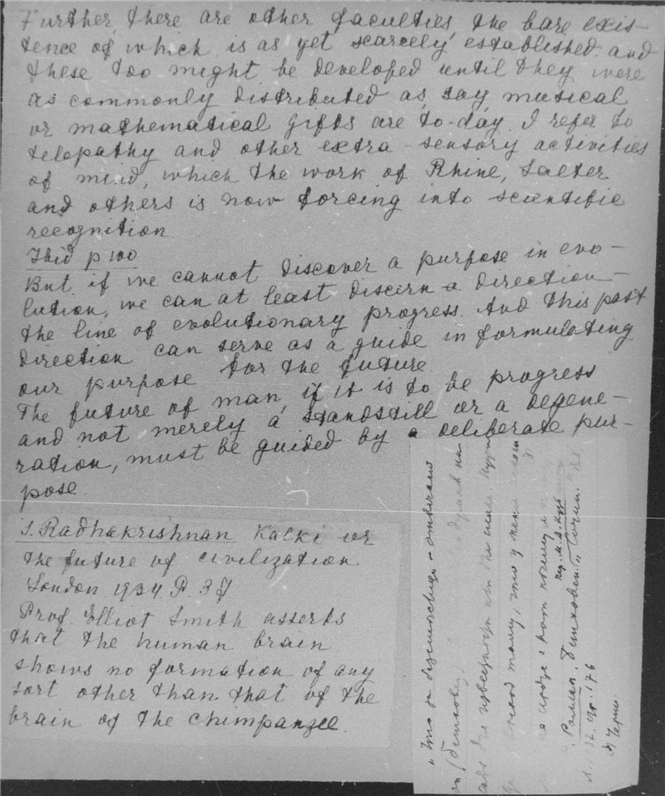 Further, there are other faculties, the bare exis-
tence of which is as yet scarcely established. and
these too might be developed until they were
as commonly distributed as, say, musical
or mathematical gifts are to-day. I refer to
telepathy and other extra-sensory activities
of mind, which the work of Rhine, Salter
and others is now forcing into scientific
recognition
Ibid p 100
But if we cannot discover a purpose in evo-
lution, we can at least discern a direction-
the line of evolutionary progress. And this past
direction can serve as a guide in formulating
our purpose for the future.
The future of man, if it is to be progress
and not merely a standstill or a degene-
ration, must be guided by a deliberate pur-
pose.
S. Radhakrishnan Kalki or
the future of civilization
London 1934 P. 37
Prof. Elliot Smith asserts
that the human brain
shows no formation of any
sort other than that of the
brain of the chimpanzee.